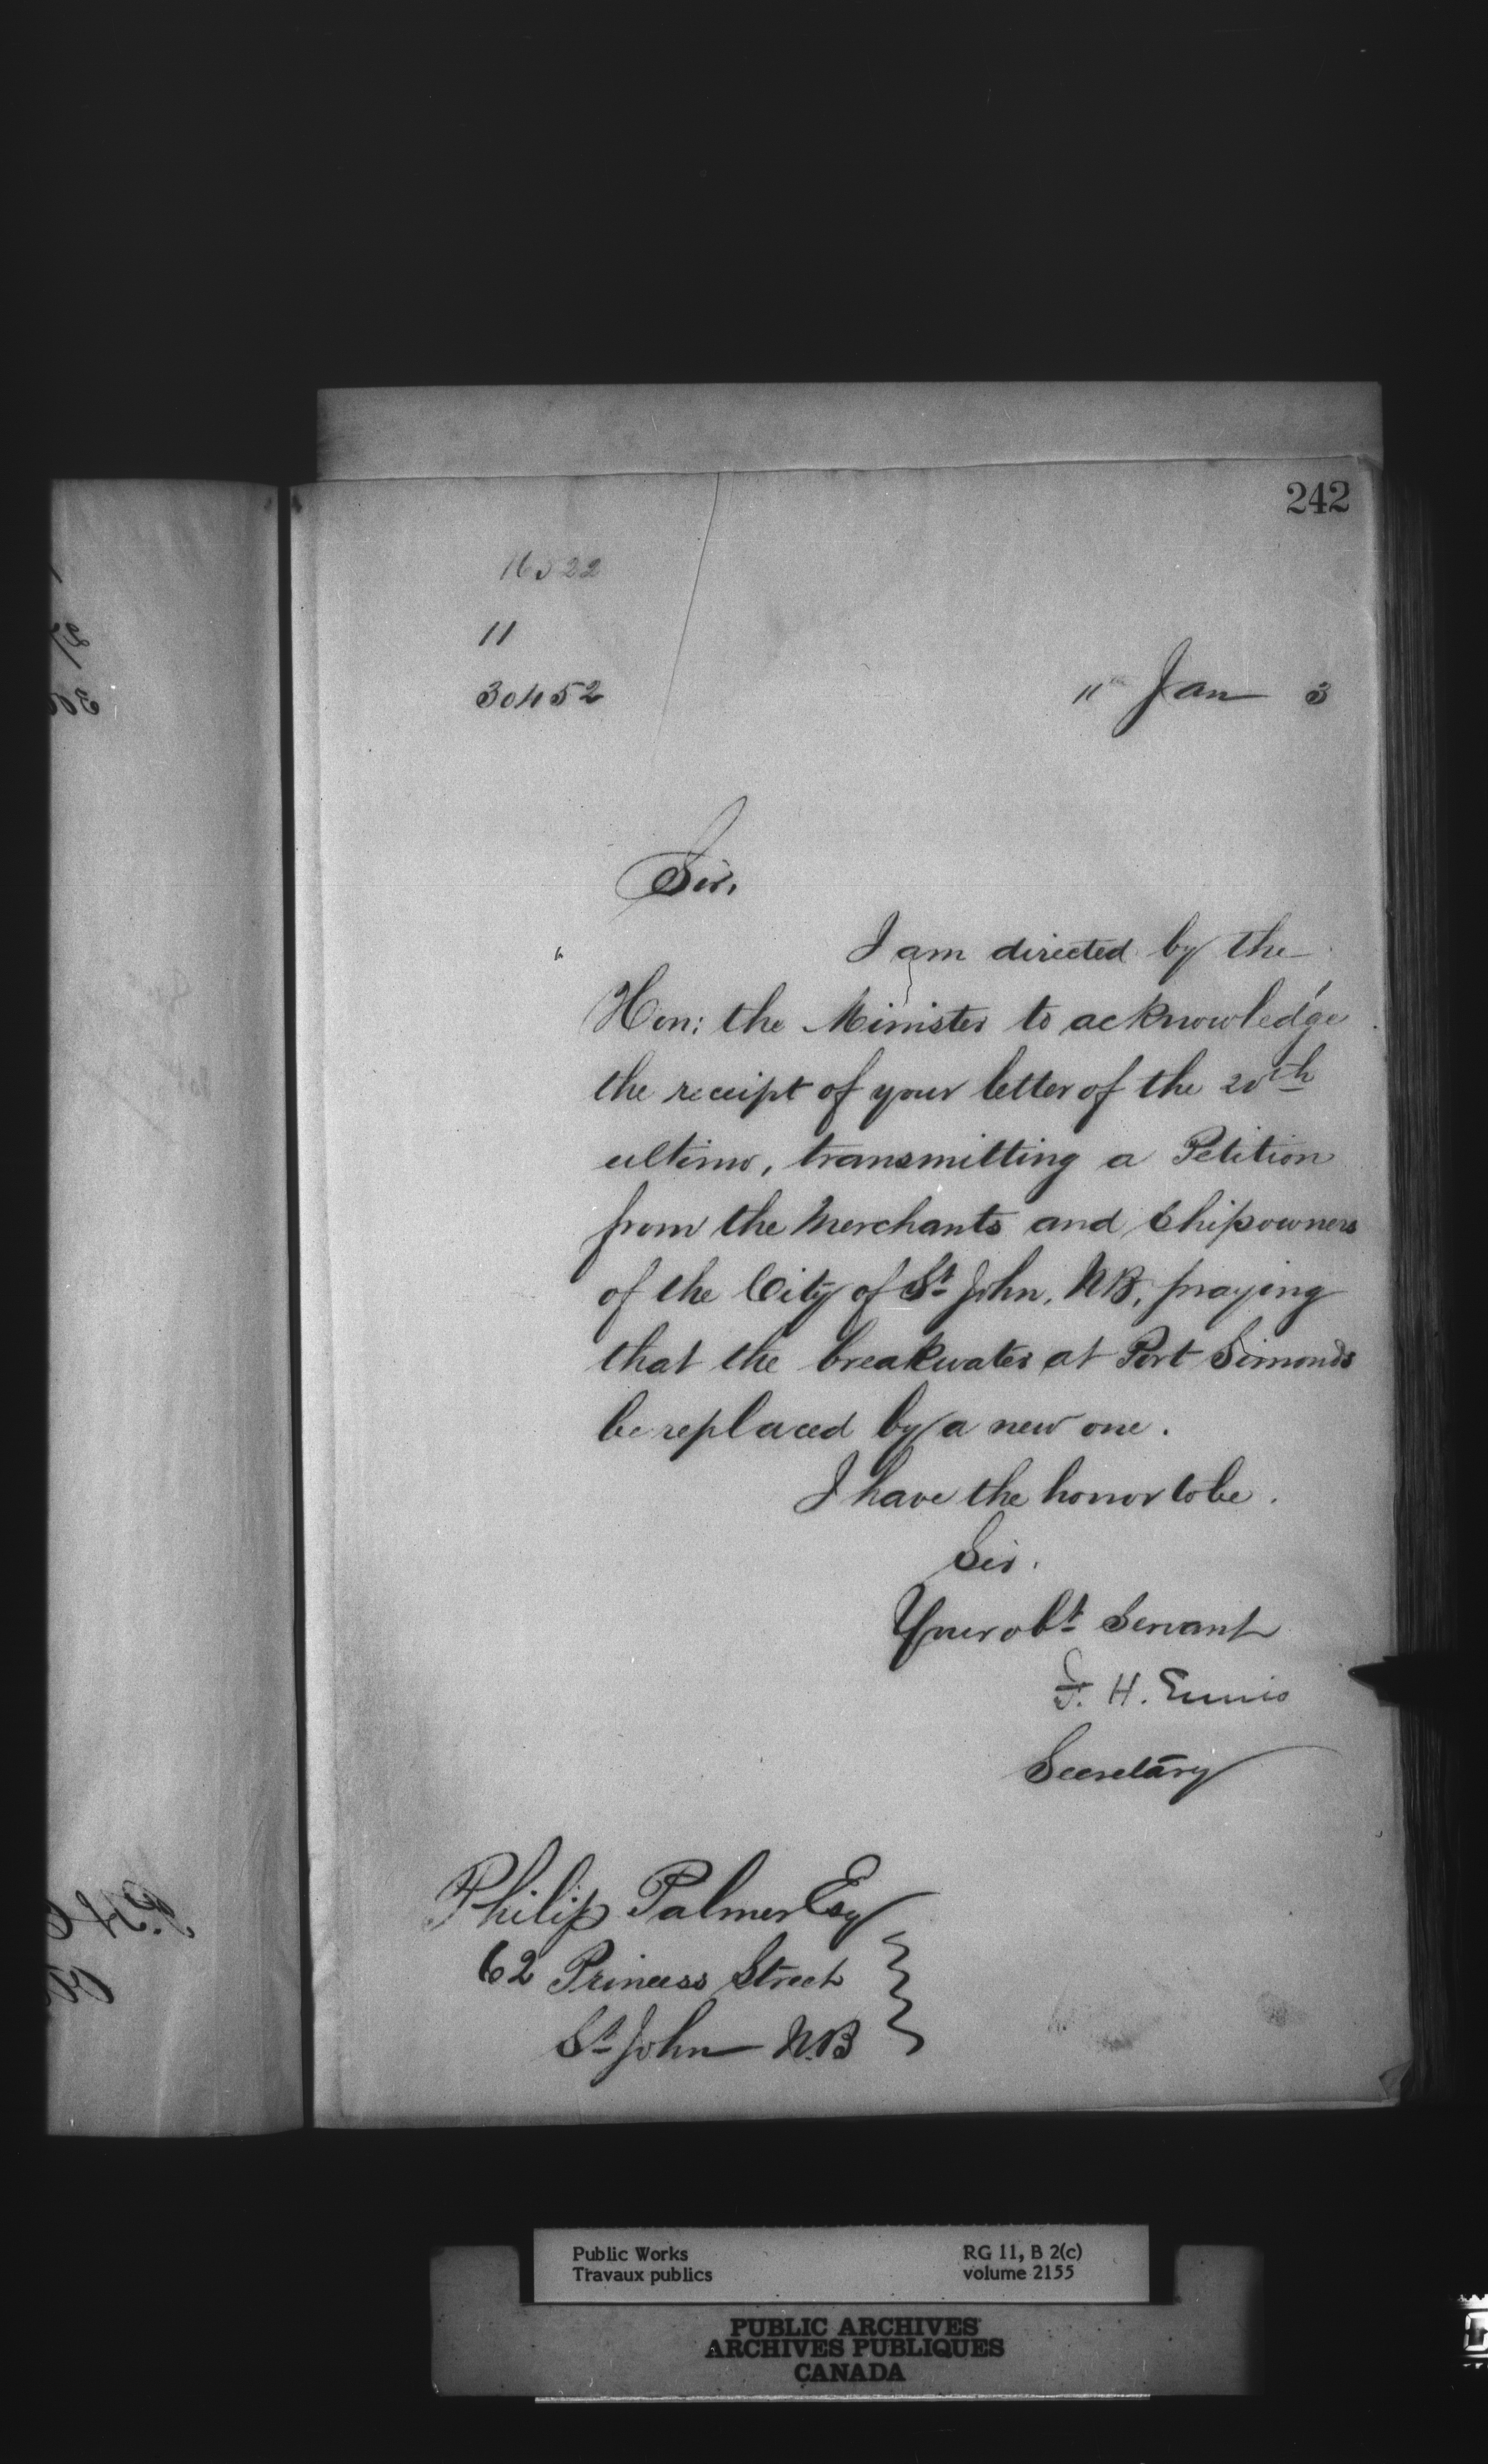 242
16522
11
30452
11th Jan 3
Sir,
I am directed by the
Hon: the Minister to acknowledge
the receipt of your letter of the 20th
ultimo, transmitting a Petition
from the Merchants and Shipowners
of the City of St John, NB, praying
that the breakwater at Port Simonds
be replaced by a new one.
I have the honor to be.
Sir.
Your obt Servant
F. H. Ennis
Secretary
Philip Palmer Esq
62 Princess Street
St John N.B
Public Works
Travaux publics
RG 11, B 2(c)
volume 2155
PUBLIC ARCHIVES
ARCHIVES PUBLIQUES
CANADA